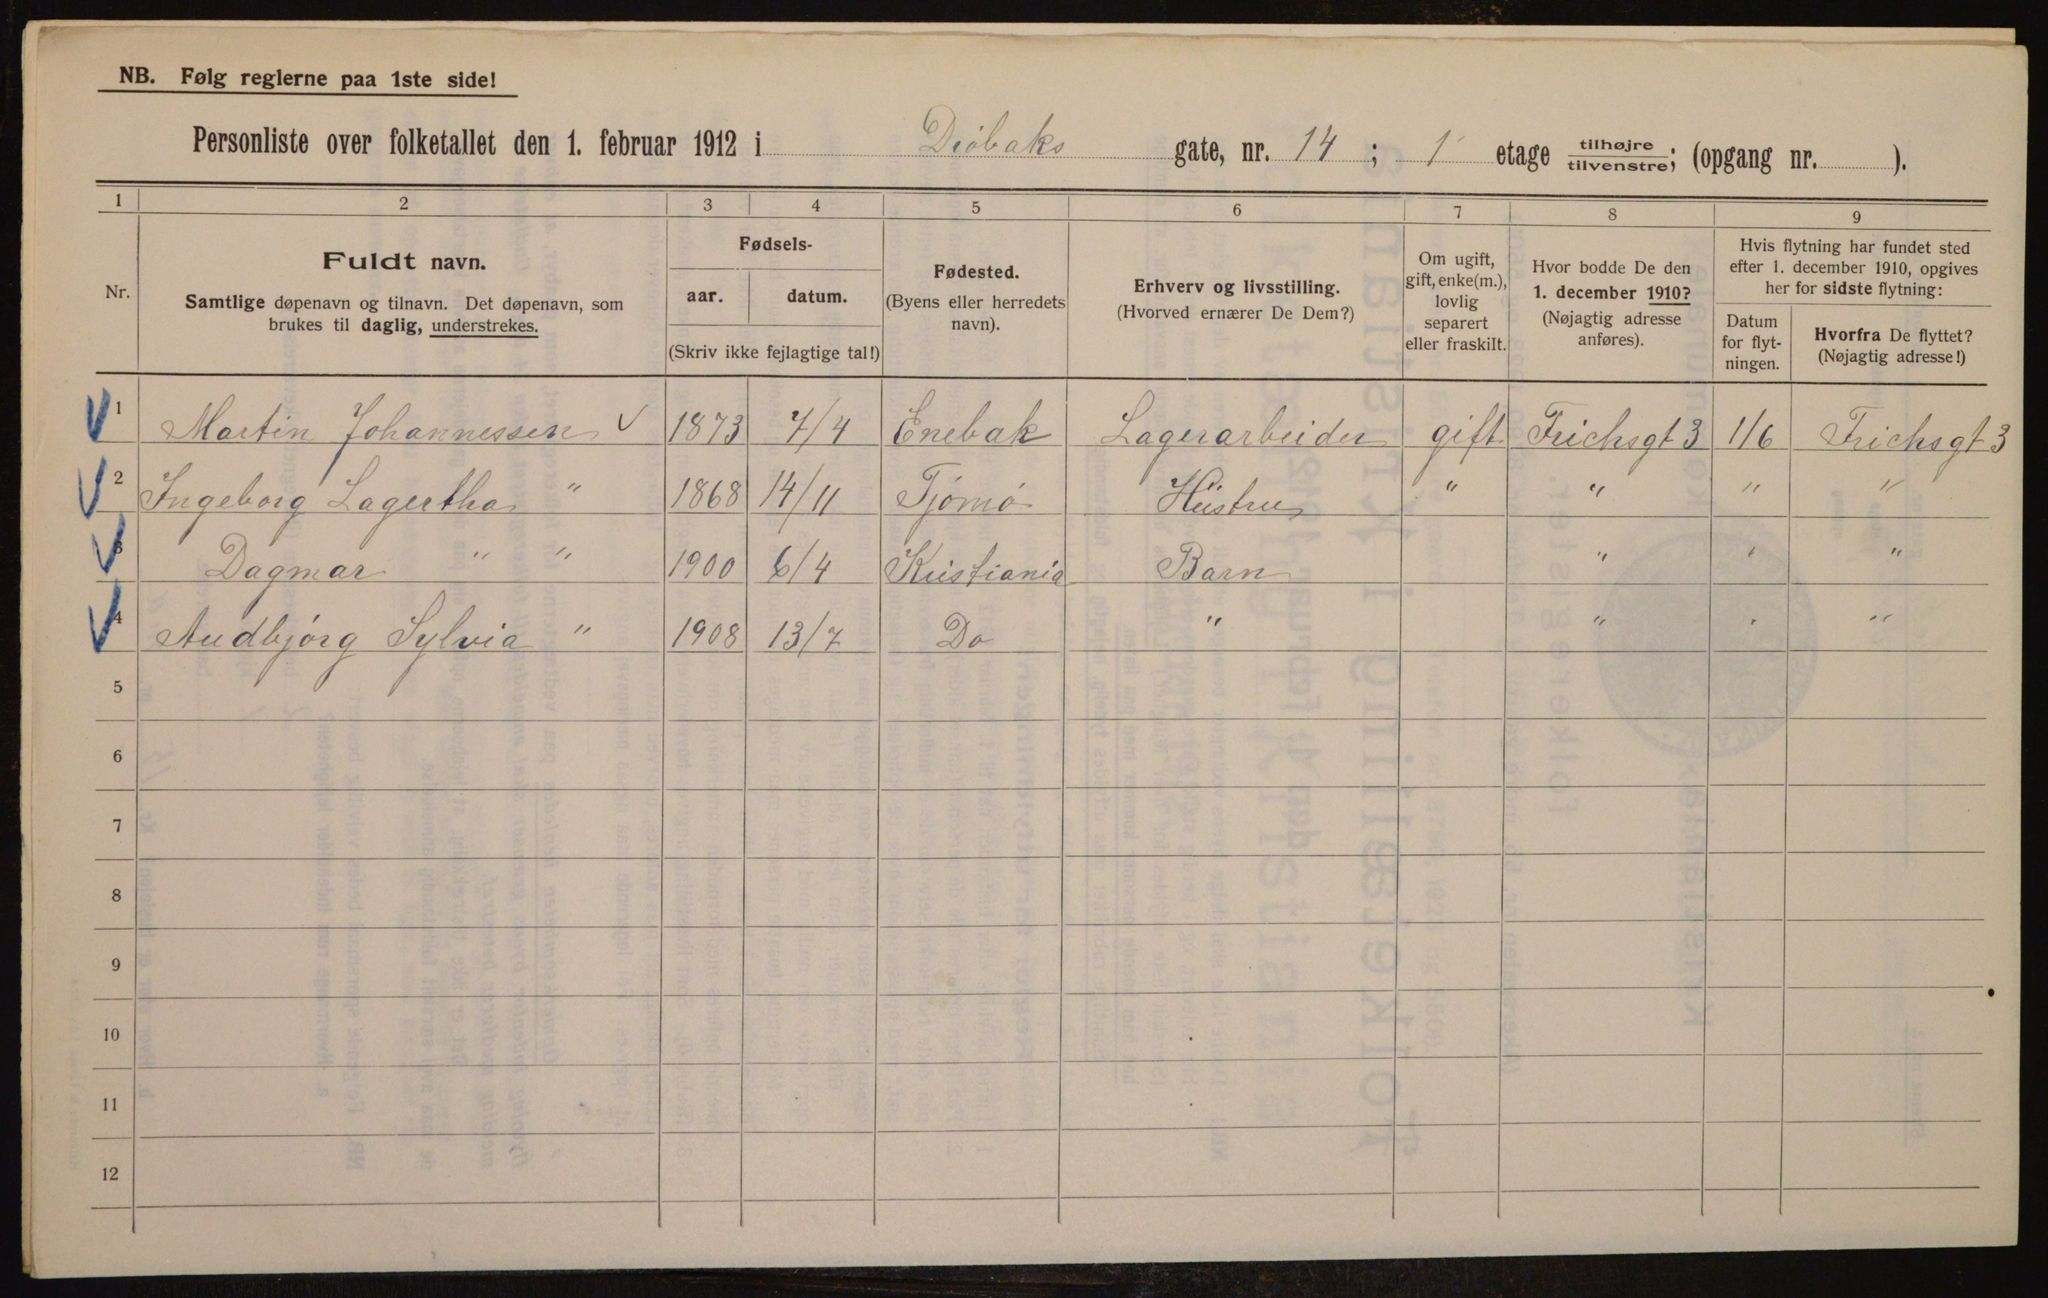 NB. Følg reglerne paa 1ste side!
Personliste over folketallet den 1. februar 1912 i Drøbaks gate, nr. 14; 1 etage tilhøjre/tilvenstre; (opgang nr. ).
1 2 3 4 5 6 7 8 9
Nr.
Fuldt navn.
Samtlige døpenavn og tilnavn. Det døpenavn, som
brukes til daglig, understrekes.
Fødsels-
aar. datum.
(Skriv ikke fejlagtige tal!)
Fødested.
(Byens eller herredets
navn).
Erhverv og livsstilling.
(Hvorved ernærer De Dem?)
Om ugift,
gift, enke(m.),
lovlig
separert
eller fraskilt.
Hvor bodde De den
1. december 1910?
(Nøjagtig adresse
anføres).
Hvis flytning har fundet sted
efter 1. december 1910, opgives
her for sidste flytning:
Datum
for flyt-
ningen.
Hvorfra De flyttet?
(Nøjagtig adresse!)
1 Martin Johannessen 1873 7/4 Enebak Lagerarbeider gift Frichsgt 3 1/6 Frichsgt 3
2 Ingeborg Lagertha " 1868 14/11 Tjømø Hustru " " " "
3 Dagmar " " 1900 6/4 Kristiania Barn " " "
4 Audbjørg Sylvia " 1908 13/7 Do " " " "
5
6
7
8
9
10
11
12